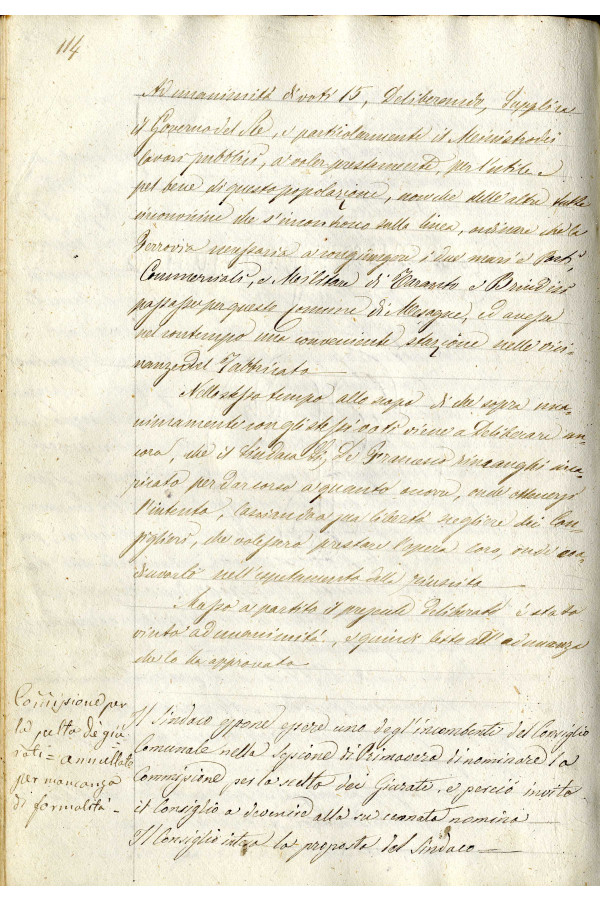 114
Ad unanimità di voti 15, Deliberando, Supplica
il Governo del Re, e particolarmente il Ministro dei
lavori pubblici, a voler prestamente, per l'utile e
pel bene di questa popolazione, nonche delle altre tutte
convicine che s'incontrano sulla linea, ordinare che la
Ferrovia necessaria a congiungere i due mari e Porti
Commerciale, e Militare di Taranto e Brindisi
passasse per questo comune di Mesagne, ed avesse
nel contempo una conveniente stazione nelle vici-
nanze del Fabbricato
Nello stesso tempo allo scopo di che sopra una-
nimamente con gli stessi voti viene a Deliberare an-
cora, che il Sindaco De Francesco rimanghi inca-
ricato per dar corso a quanto occorre, onde ottenersi
l'intento, lasciandosi sua libertà scegliere dei Con-
siglieri, che volessero prestare l'opera loro, onde coa-
diuvarlo nell'espletamento della riuscita
Messo a partito il presente deliberato è stato
vinto ad unanimità, e quindi letto all'adunanza
che lo ha approvato
Commissione per
la scelta de' giu-
rati = annullata
per mancanza
di formalità -
Il Sindaco espone essere uno degl'incombenti del Consiglio
Comunale nella Sessione di Primavera di nominare la
Commissione per la scelta dei Giurati, e perciò invita
il Consiglio a devenire alla su cennata nomina
Il Consiglio intesa la proposta del Sindaco